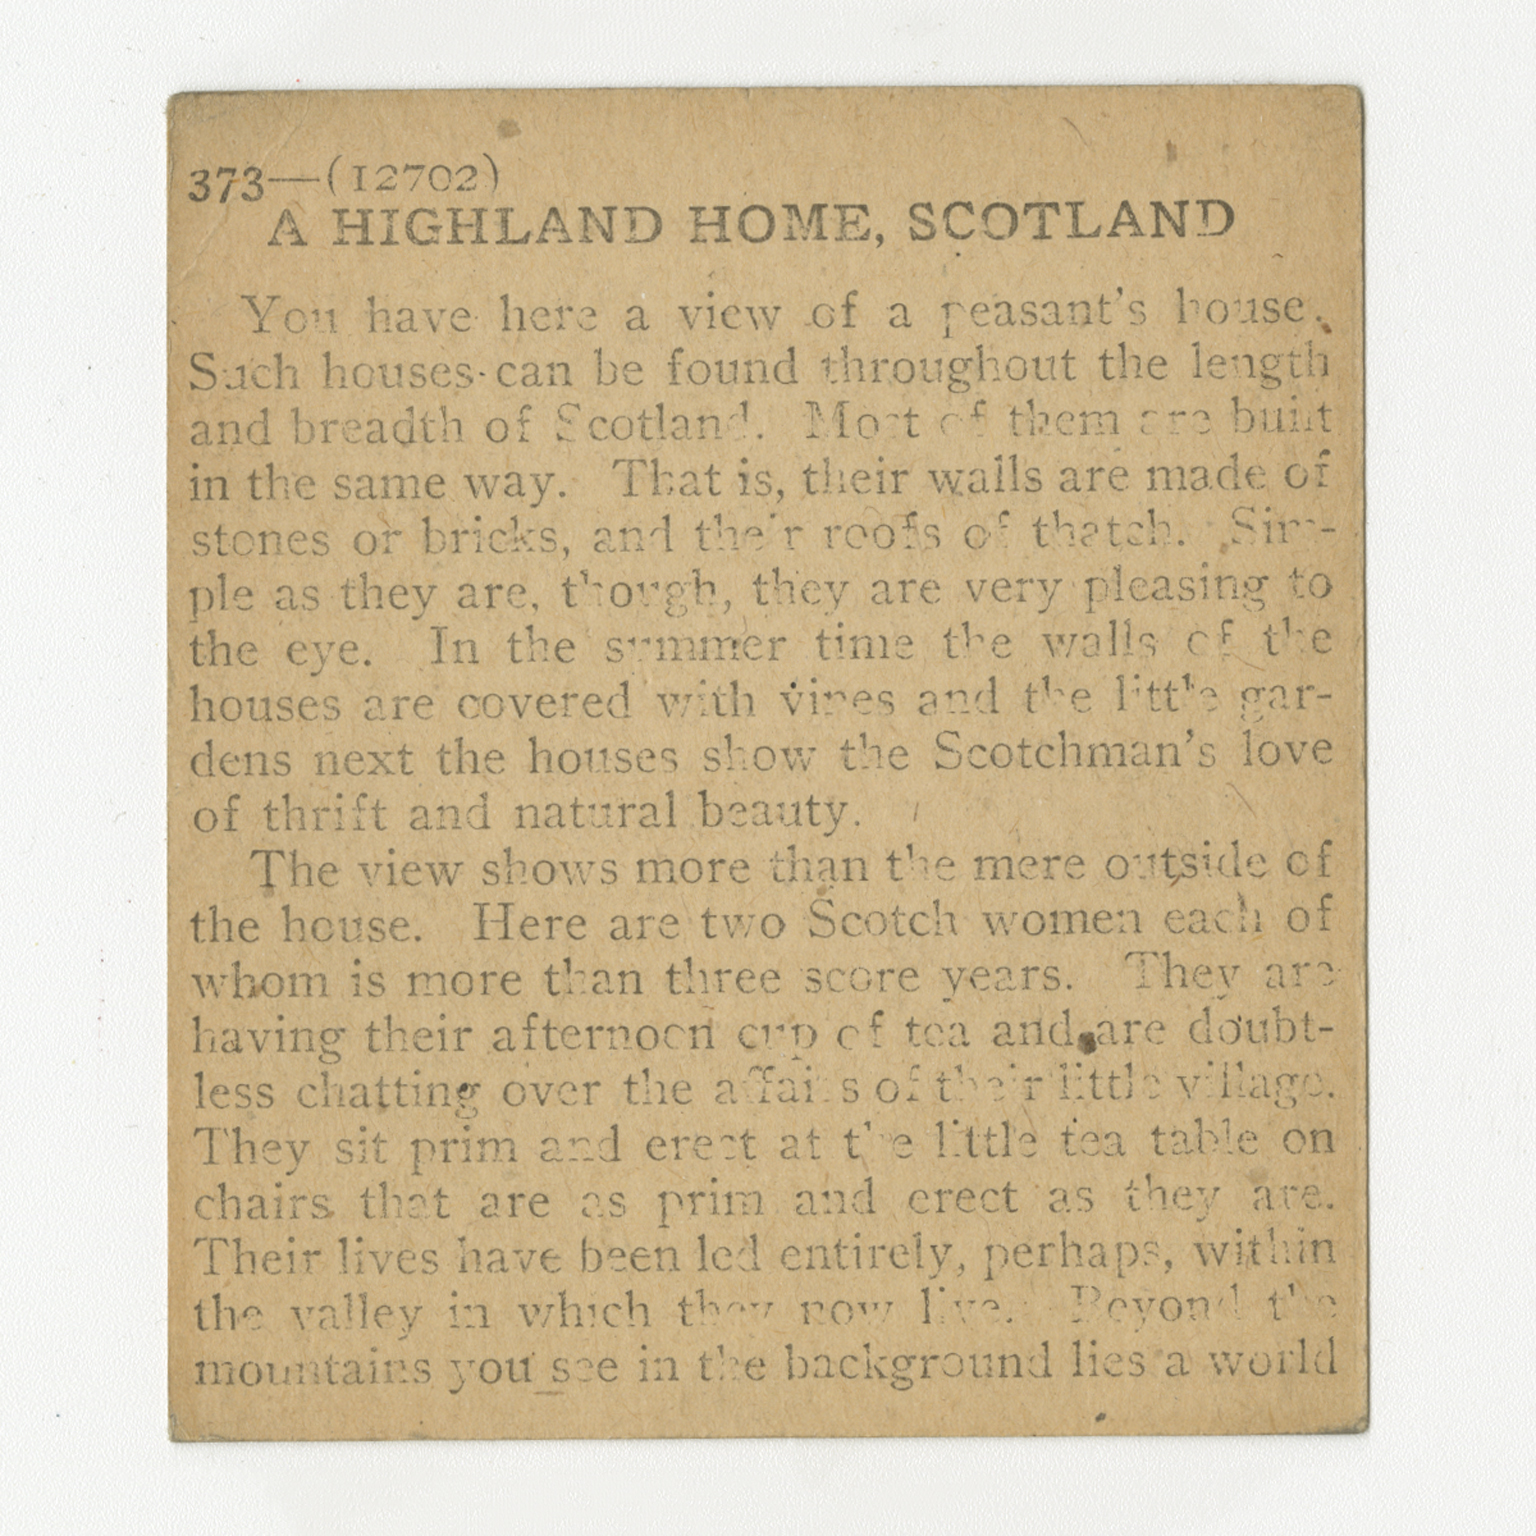 373—(12702)
A HIGHLAND HOME, SCOTLAND
You have here a view of a peasant's house.
Such houses can be found throughout the length
and breadth of Scotland. Most of them are built
in the same way. That is, their walls are made of
stones or bricks, and their roofs of thatch. Sim-
ple as they are, though, they are very pleasing to
the eye. In the summer time the walls of the
houses are covered with vines and the little gar-
dens next the houses show the Scotchman's love
of thrift and natural beauty.
The view shows more than the mere outside of
the house. Here are two Scotch women each of
whom is more than three score years. They are
having their afternoon cup of tea and are doubt-
less chatting over the affairs of their little village.
They sit prim and erect at the little tea table on
chairs that are as prim and erect as they are.
Their lives have been led entirely, perhaps, within
the valley in which they now live. Beyond the
mountains you see in the background lies a world